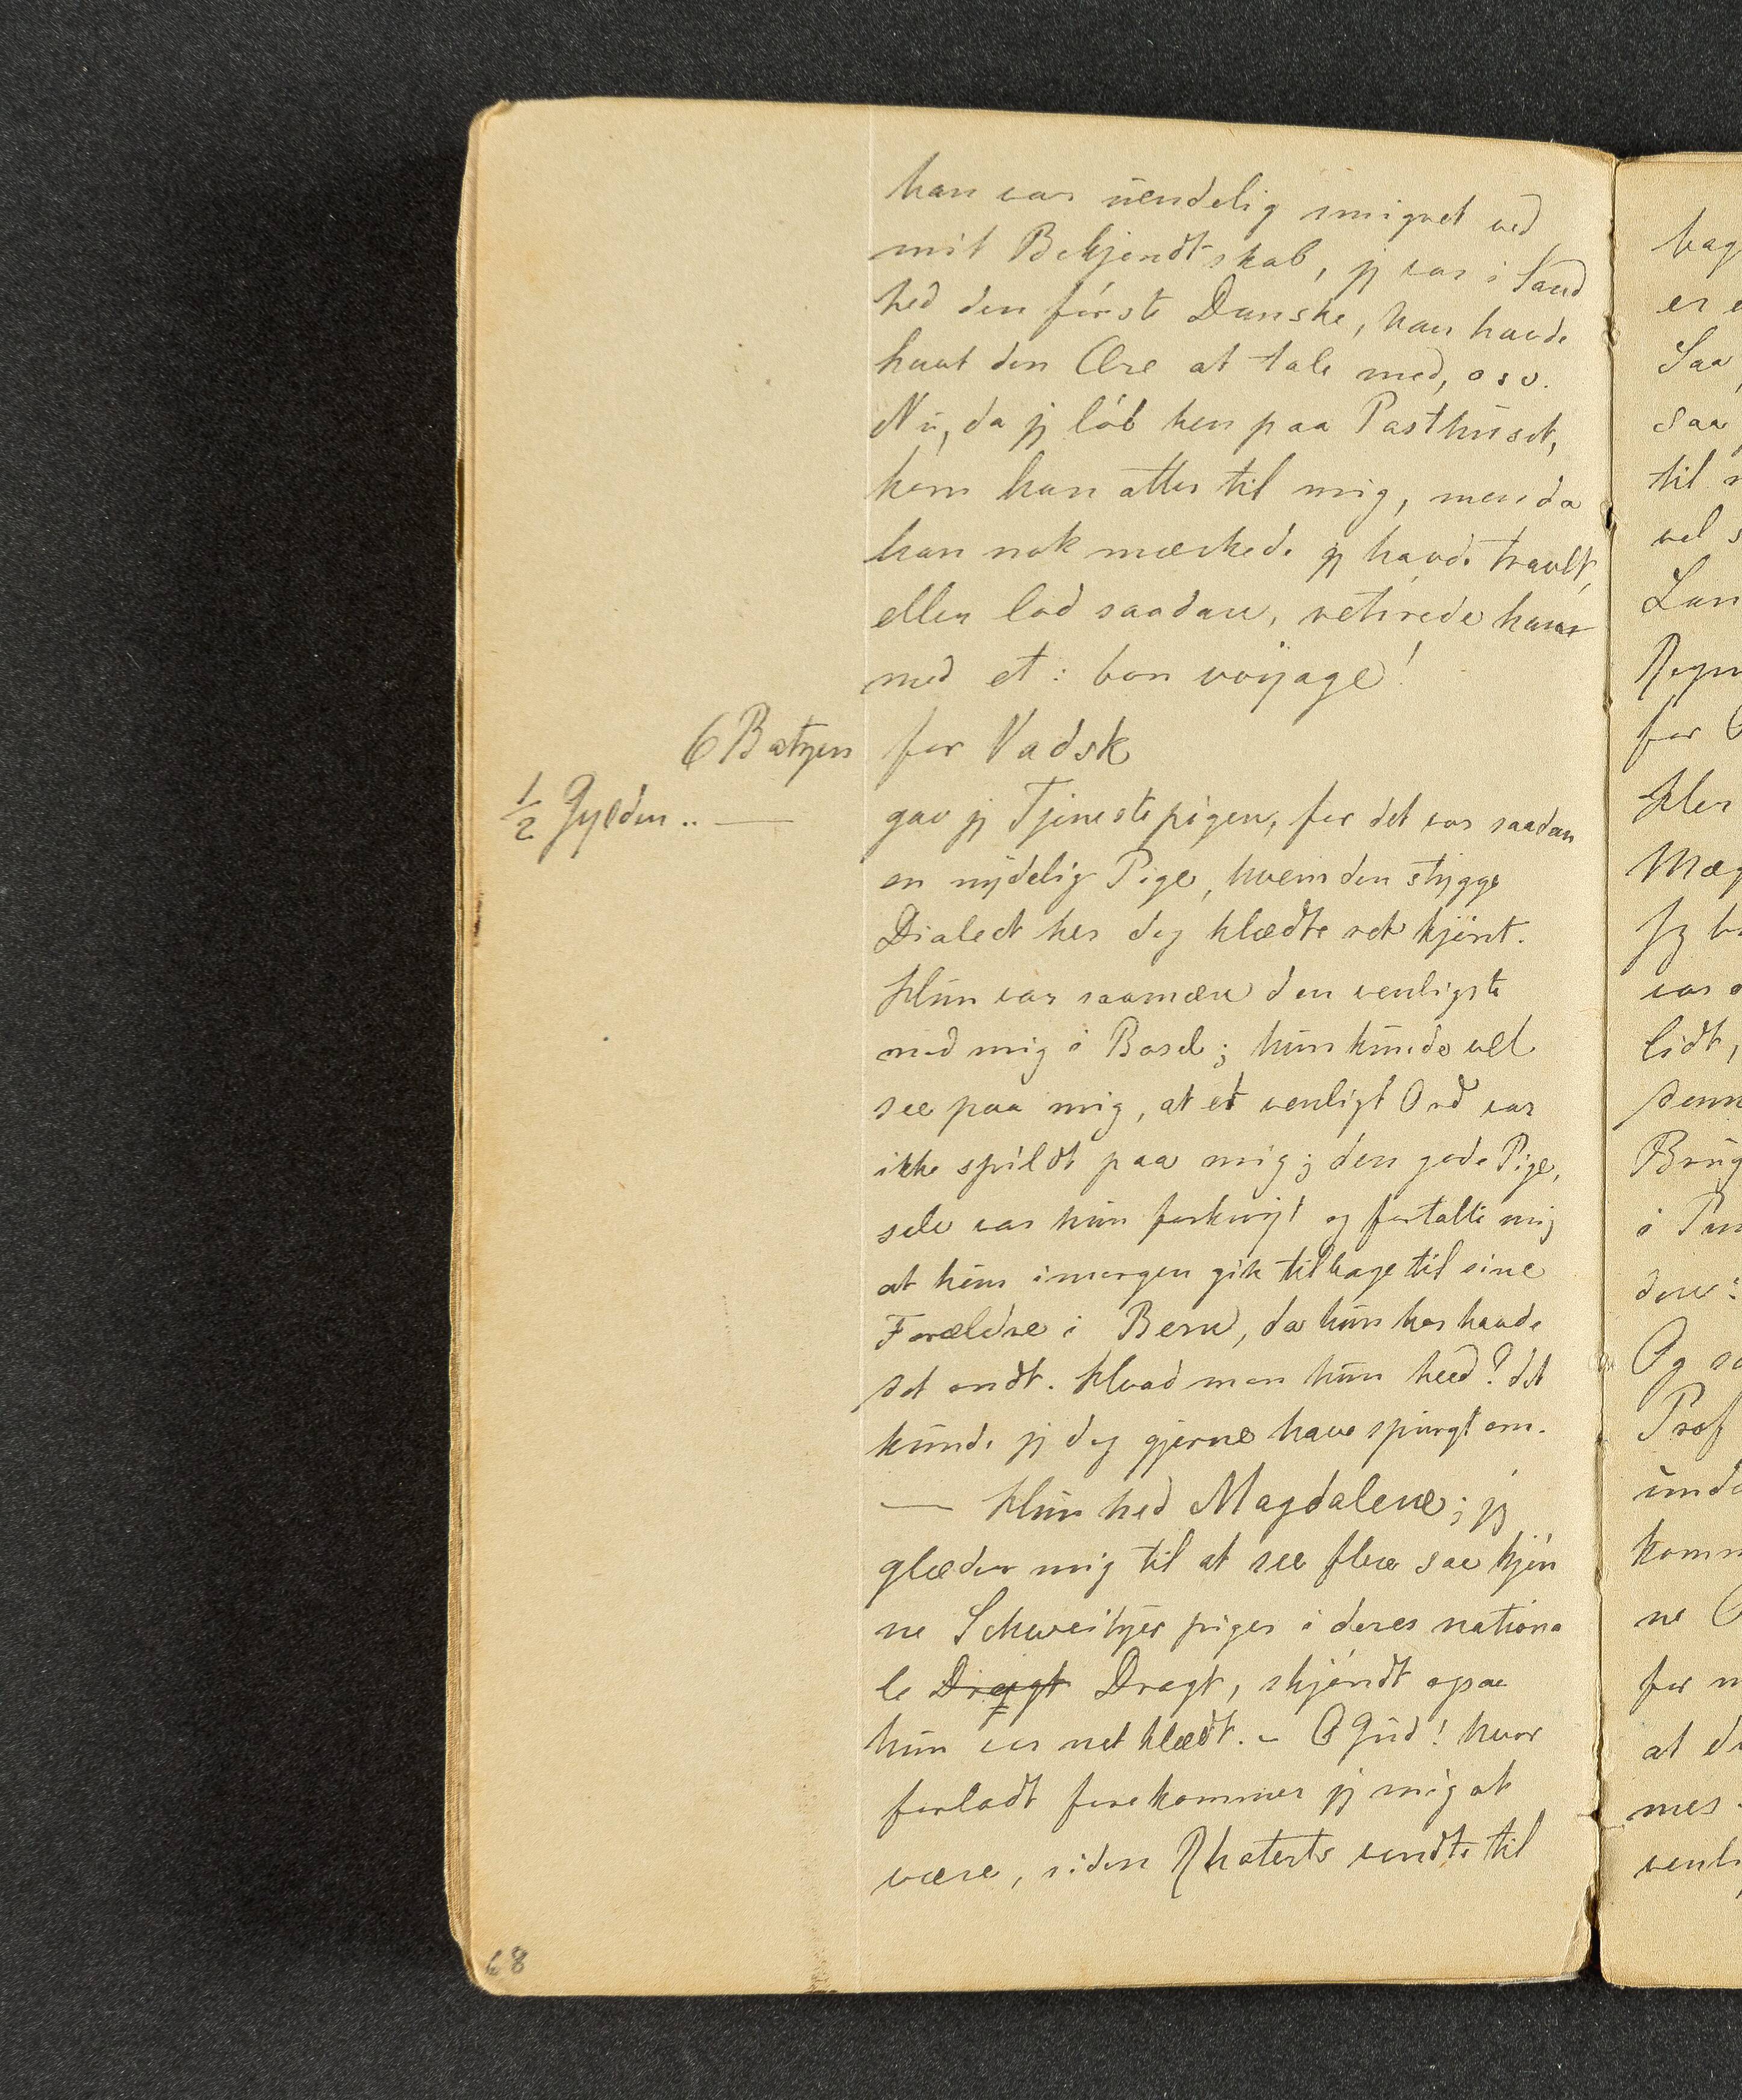 han var uendelig smigret ved
mit Bekjendtskab, jeg var i Sand
hed den første Danske, han havde
havt den Ære at tale med, osv.
Nu, da jeg løb hen paa Posthuset,
kom han atter til mig, men da
han nok mærkede jeg havde travlt,
eller lod saadan, retirede han
med et: bon voyage!
6 Batzen for Vadsk
½ Gylden .. — gav jeg Tjenestepigen, for det var saadan
en nydelig Pige, hvem den stygge
Dialect her dog klædte ret kjønt.
Hun var saamæn den venligste
mod mig i Basel; hun kunde vel
see paa mig, at et venligt Ord var
ikke spildt paa mig; den gode Pige,
selv var hun forknyt og fortalte mig
at hun imorgen gik tilbage til sine
Forældre i Bern, da hun her havde
det ondt. Hvad mon hun heed? det
kunde jeg dog gjerne have spurgt om.
— Hun hed Magdalene; jeg
glæder mig til at see flere saa kjøn
ne Schweitzerpiger i deres nationa
le Dragt Dragt, skjøndt ogsaa
hun var net klædt. – O Gud! hvor
forladt forekommer jeg mig at
være, siden vendte til
68
bag
er
Saa
saa
til
vel
Lan
for
Mæg
Jeg
var
lidt,
denn
Brug
i
Og
Prof
unde
komm
ne
for
at
mes
venli